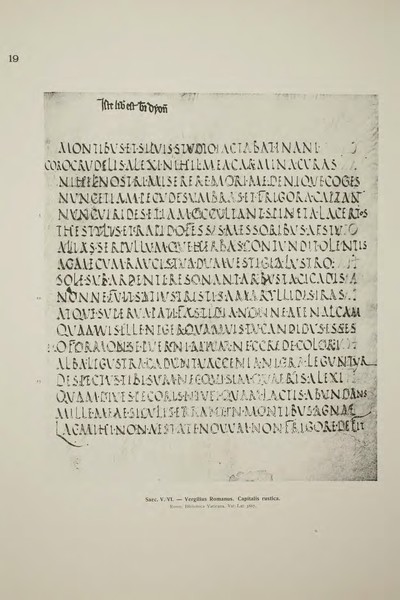 19
Iste lib est
MONTIBVS ET SILVIS STVDIO IACTABAT INANI
O CRVDELIS ALEXI NIHIL MEA CARMINA CVRAS
NIHIL NOSTRI MISERERE MORI ME DENIQVE COGES
NVNC ETIAM PECVDES VMBRAS ET FRIGORA CAPTANT
NVNC VIRIDES ETIAM OCCVLTANT SPINETA LACERTOS
THESTYLIS ET RAPIDO FESSIS MESSORIBVS AESTV
ALIA SERPVLLVMQVE HERBAS CONTVNDIT OLENTIS
AC MECVM RAVCIS TVA DVM VESTIGIA LVSTRO
SOLE SVB ARDENTI RESONANT ARBVSTA CICADIS
NONNE FVIT SATIVS TRISTIS AMARYLLIDIS IRAS
ATQVE SVPERVM PATI FASTIDIA NONNE MENALCAM
QVAMVIS ILLE NIGER QVAMVIS TV CANDIDVS ESSES
O FORMONSE PVER NIMIVM NE CREDE COLORI
ALBA LEGVSTRA CADVNT VACCINIA NIGRA LEGVNTVR
DESPECTVS TIBI SVM NEC QVI SIM QVAERIS ALEXI
QVAM DIVES PECORIS NIVEI QVAM LACTIS ABVNDANS
MILLE MEAE SICVLIS ERRANT IN MONTIBVS AGNAE
LAC MIHI NON AESTATE NOVVM NON FRIGORE DEFIT
Saec. V/VI. — Vergilius Romanus. Capitalis rustica.
Roma, Biblioteca Vaticana, Vat. Lat. 3867.